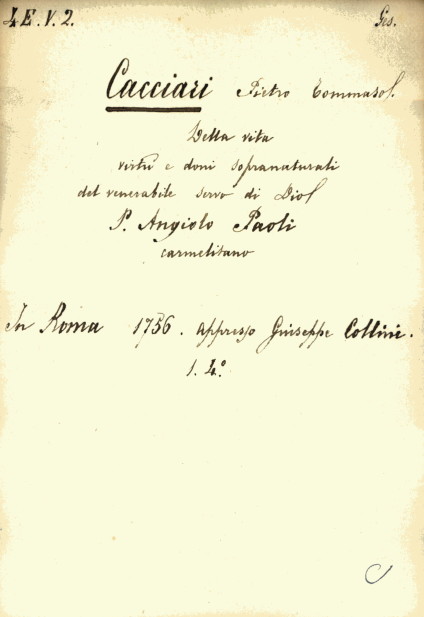 4 E. V. 2. Ges.
Cacciari Pietro Tommaso/.
Della vita
virtù e doni sopranaturali
del venerabile servo di Dio/
P. Angiolo Paoli
carmelitano
In Roma 1756. appresso Giuseppe Collini.
1. 4.°